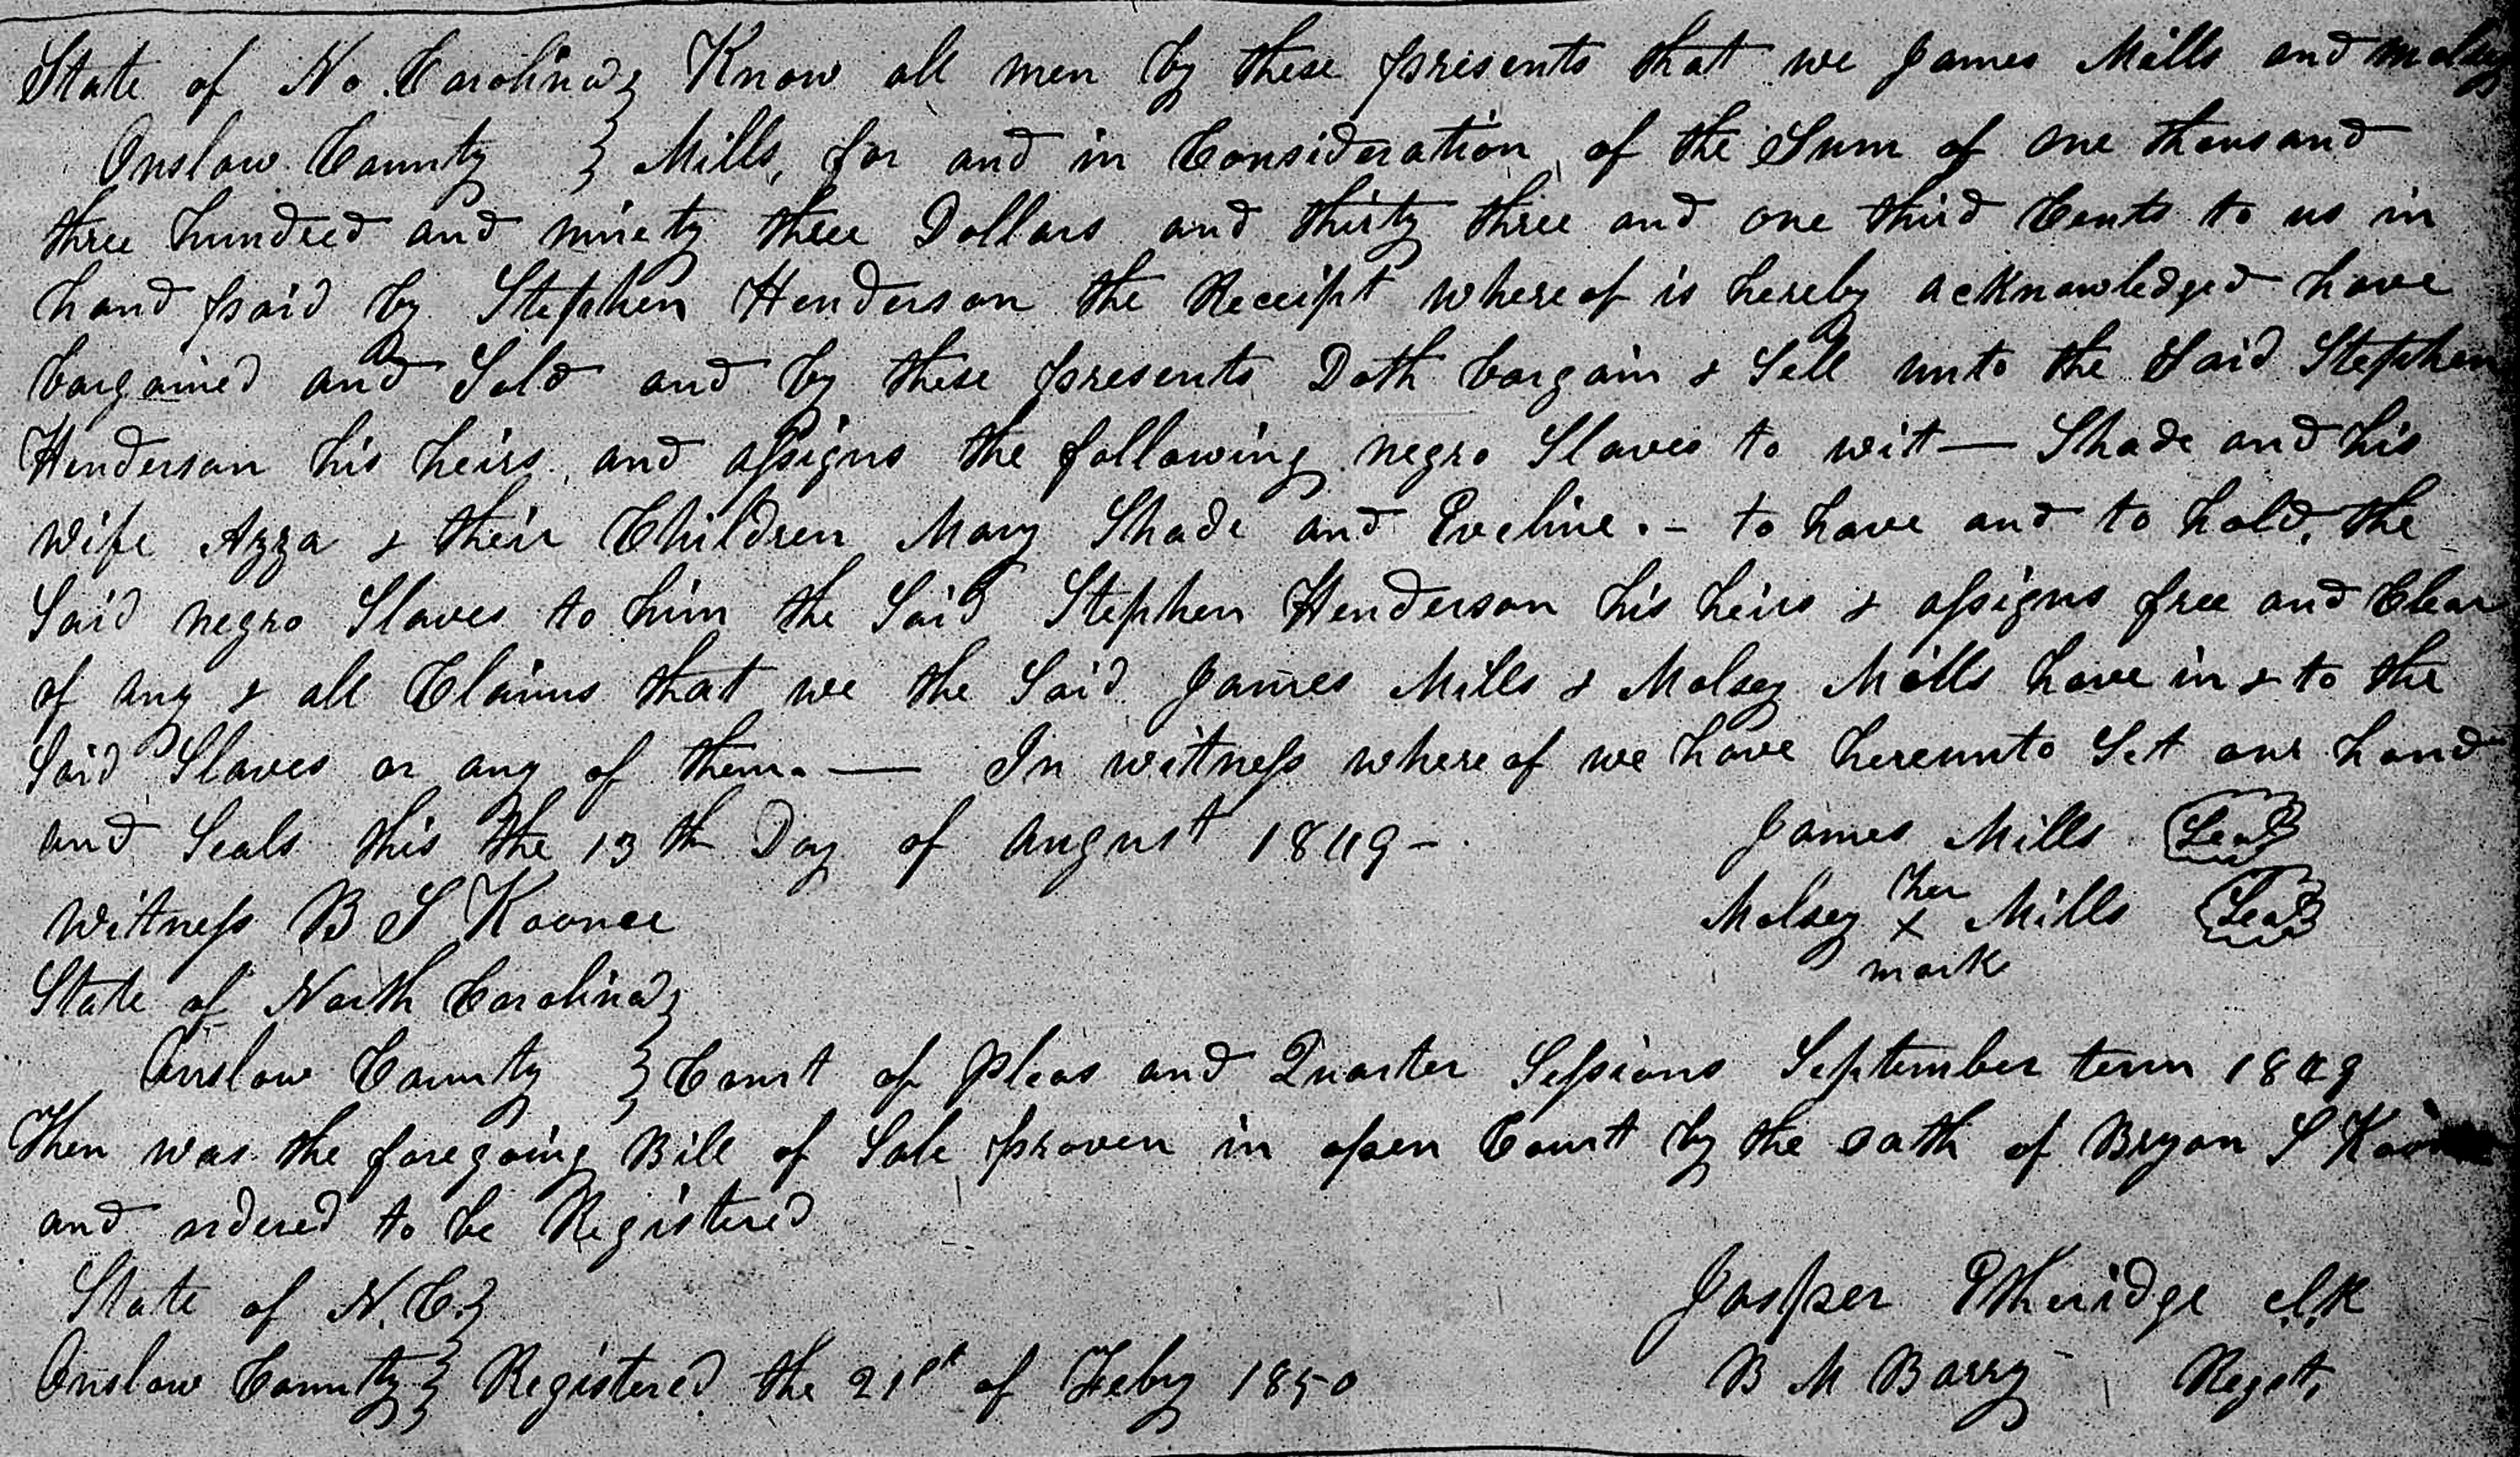 State of No. Carolina } Know all men by these presents that we James Mills and Molsey
Onslow County } Mills, for and in Consideration of the Sum of one thousand
three hundred and ninety three Dollars and thirty three and one third Cents to us in
hand paid by Stephen Henderson the Receipt whereof is hereby acknowledged have
bargained and Sold and by these presents Doth bargain & Sell unto the Said Stephen
Henderson his heirs and assigns the following negro Slaves to wit — Shade and his
wife Azza & their Children Mary Shade and Eveline. - to have and to hold, the
Said negro Slaves to him the Said Stephen Henderson his heirs & assigns free and Clear
of any & all Claims that we the Said James Mills & Molsey Mills have in & to the
Said Slaves or any of them. — In witness whereof we have hereunto Set our hand
and Seals this the 13th Day of August 1849 - James Mills Seal
Witness B S Koonce Molsey her x mark Mills Seal
State of North Carolina }
Onslow County } Court of Pleas and Quarter Sessions September term 1849
Then was the foregoing Bill of Sale proven in open Court by the oath of Bryan S
and ordered to be Registered
State of N. C. } Jasper Etheridge clk
Onslow County } Registered the 21st of Feby 1850 B M Barry Regstr